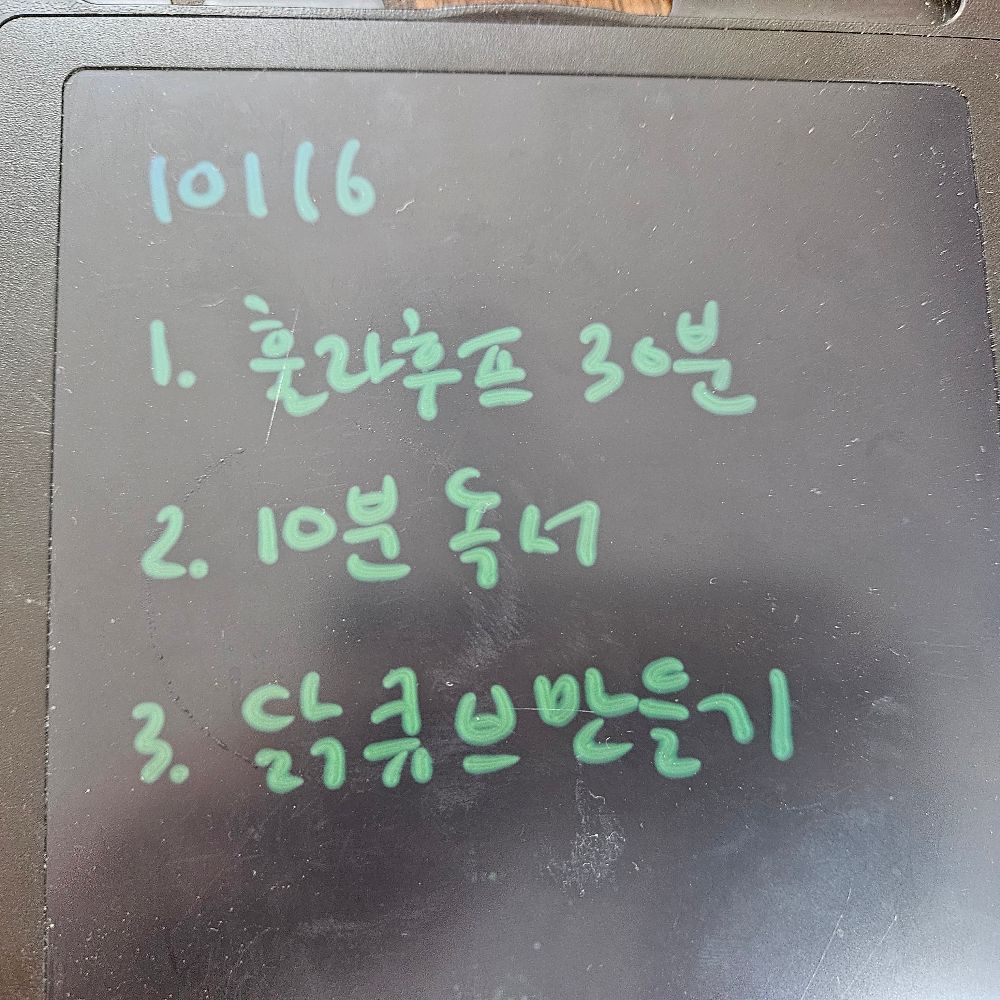 10116
1. 훌라후프 30분
2. 10분 독서
3. 닭큐브만들기